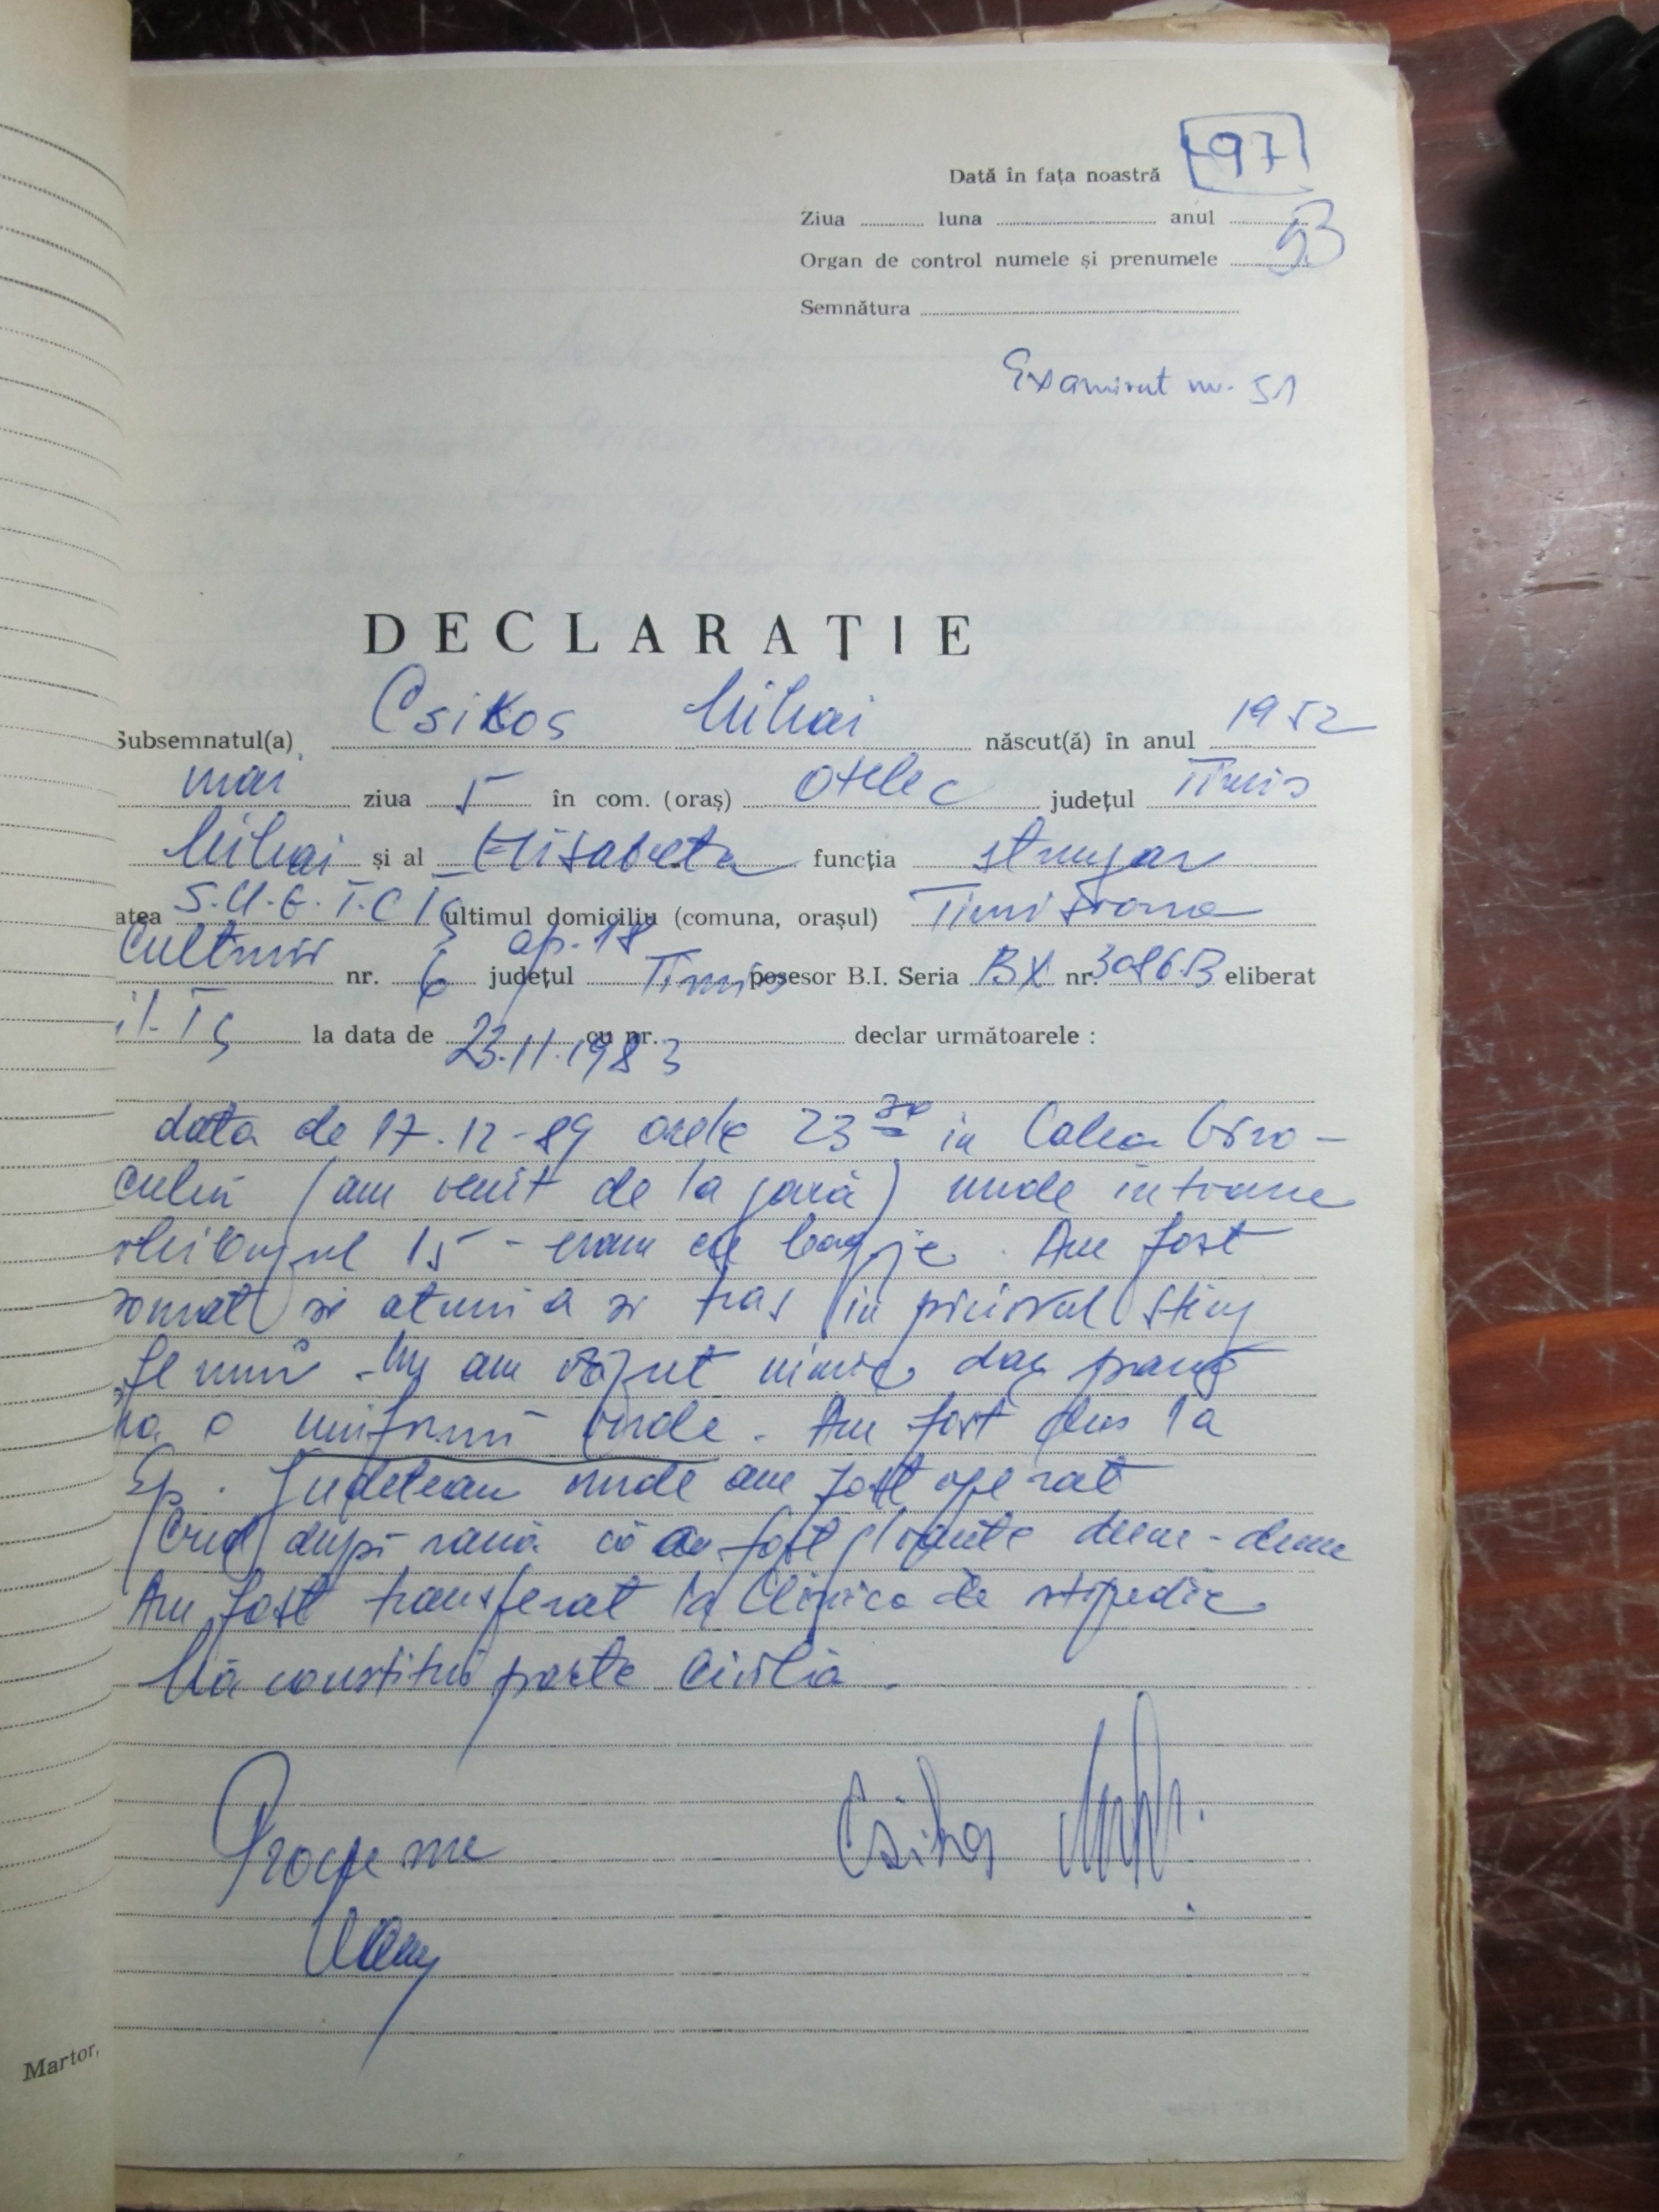 97
Dată în fața noastră
Ziua ......... luna ......... anul .........
93
Organ de control numele și prenumele .........
Semnătura .........
Examinat nr. 51
DECLARAȚIE
Subsemnatul(a) Csikos Mihai născut(ă) în anul 1952
mai ziua 5 în com. (oraș) Otelec județul Timis
Mihai și al Elisabeta funcția strungar
atea ultimul domiciliu (comuna, orașul) Timisoara
Culturii nr. 6 ap. 18 județul Timis posesor B.I. Seria BX nr. eliberat
la data de 23.11.1983 cu nr. ......... declar următoarele :
data de 17.12-89 orele 23 30 in Calea Giro-
cului (am venit de la gară) unde intoarce
15 - eram cu bagaje. Am fost
somat si atunci a si tras in piciorul sting
Nu am văzut nimic dar parcă
o uniformă verde. Am fost dus la
Sp. Judetean unde am fost operat
Cred după rană că au fost gloante dum-dum
Am fost transferat la Clinica de ortopedie
Mă constitui parte civilă.
Csikos
Martor,